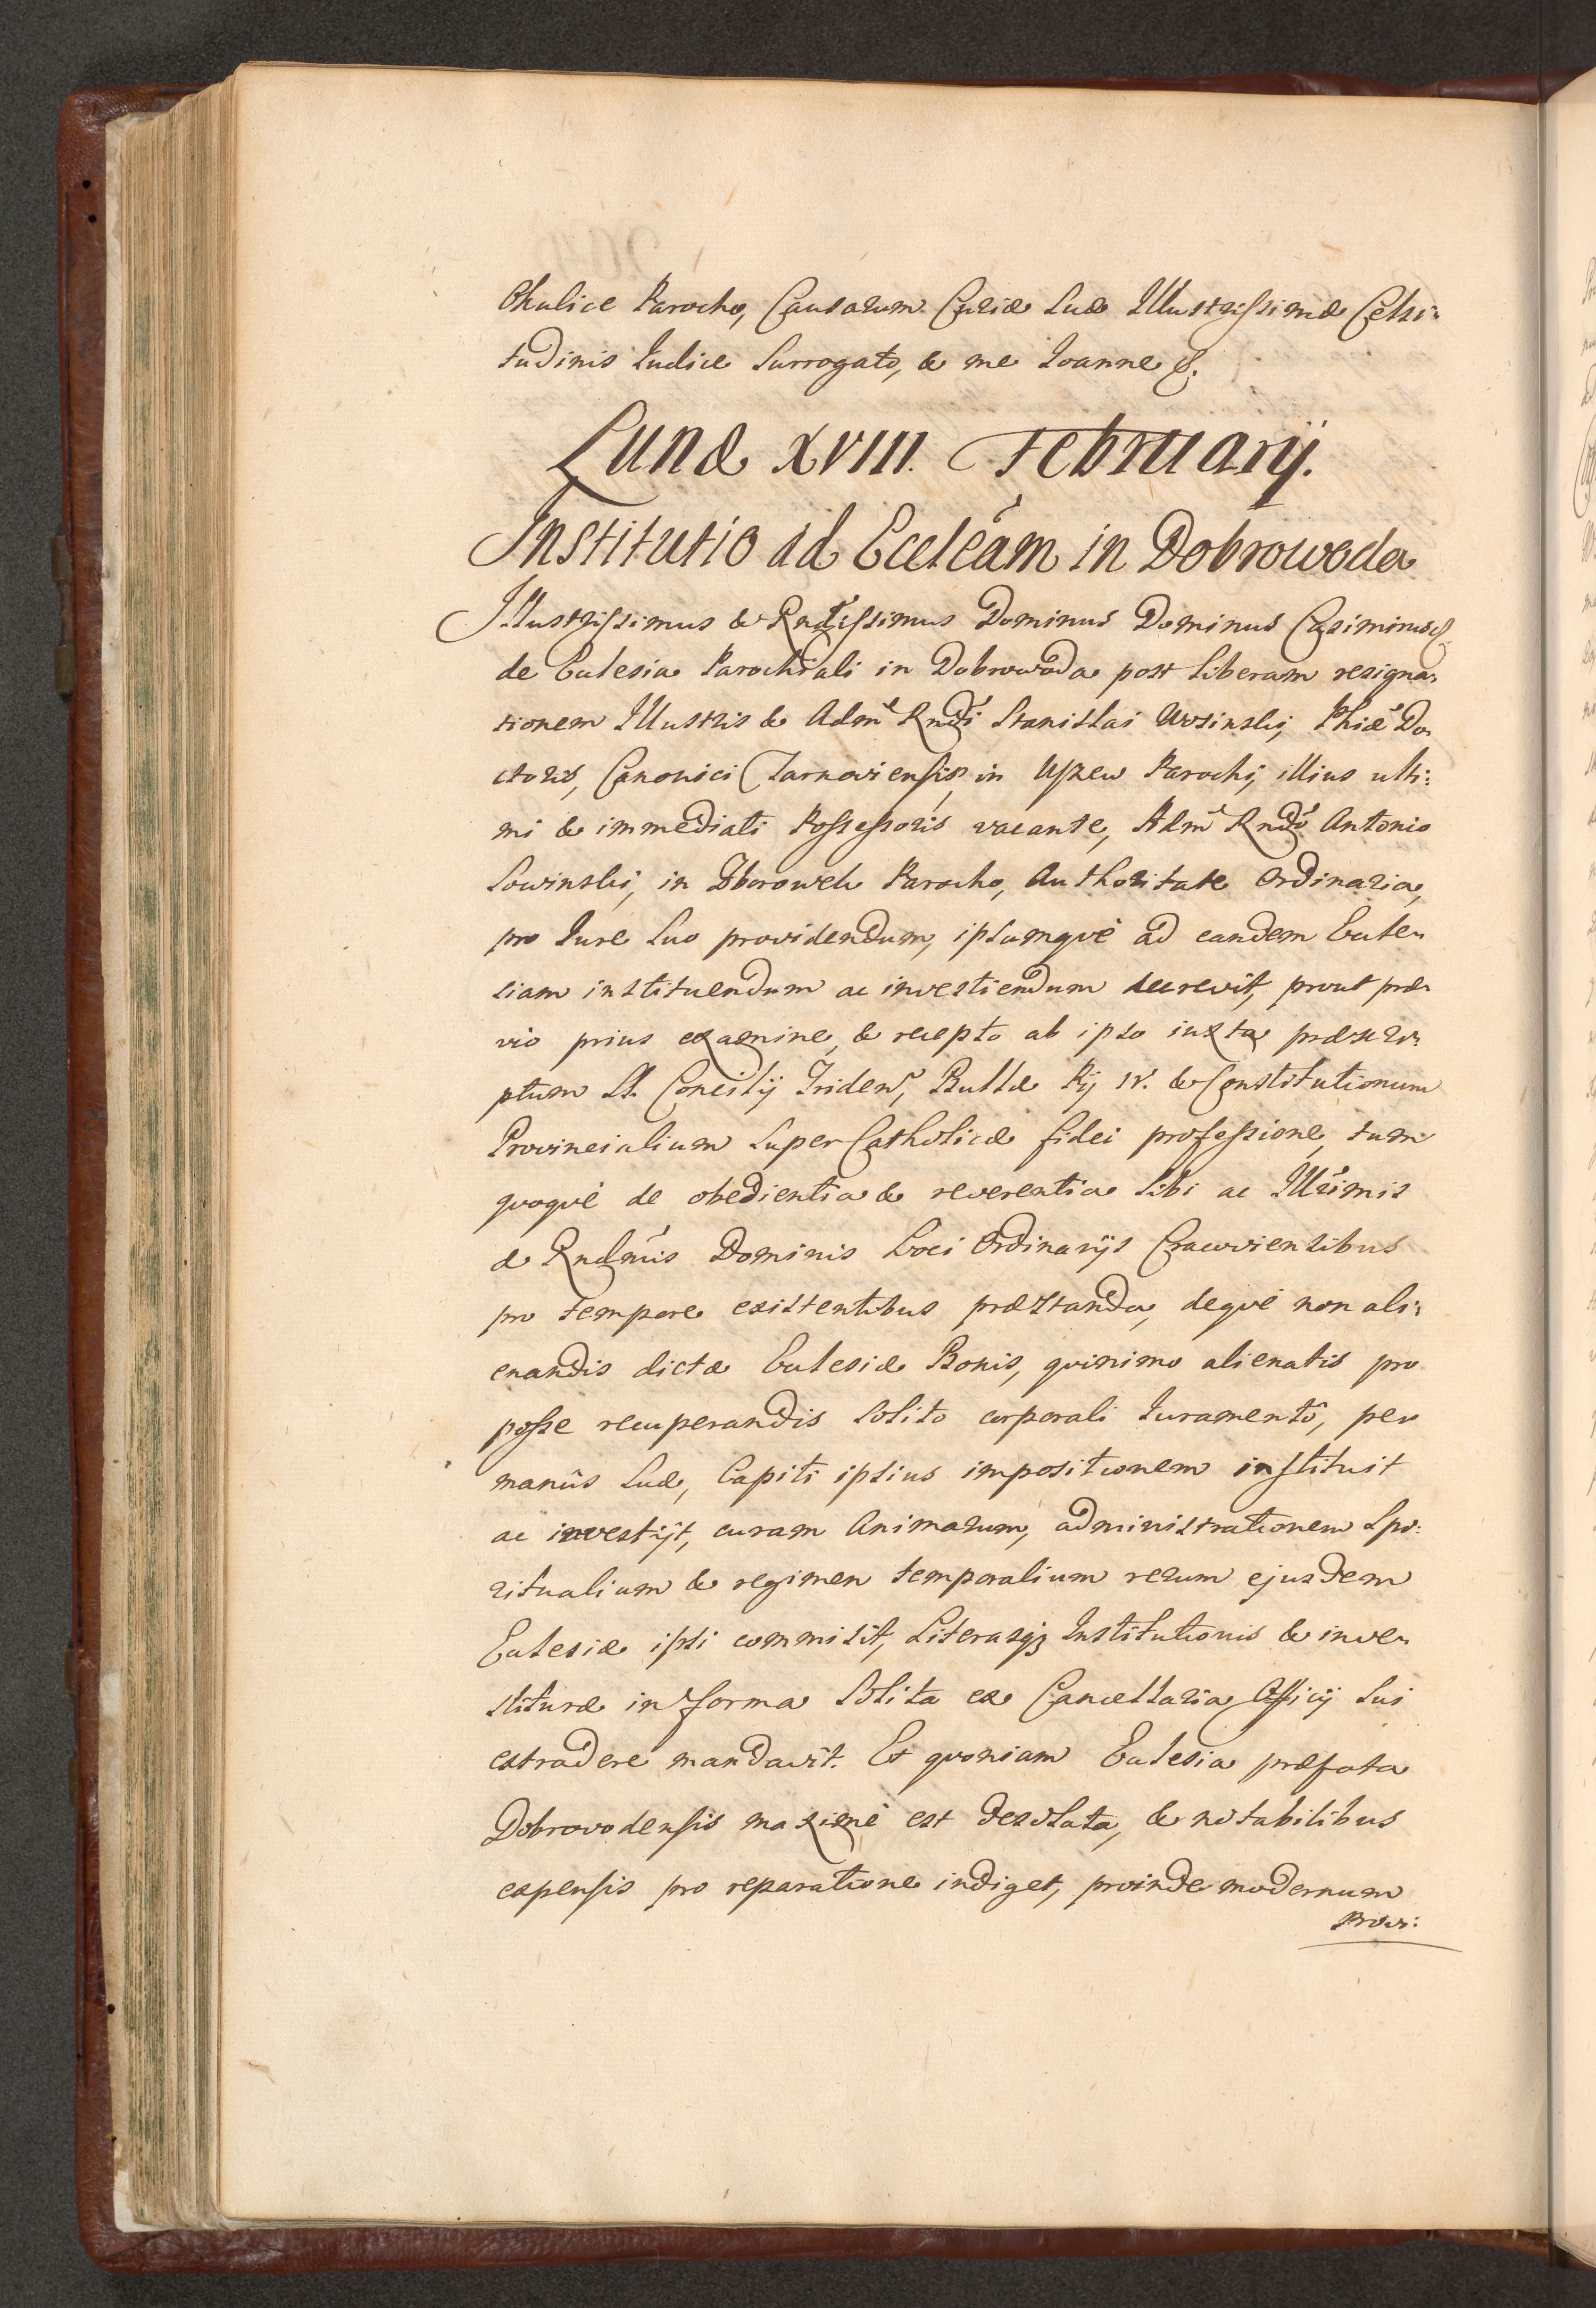 Okulice Parocho, Causarum Curiæ Suæ Illustrissimæ Celsi:
tudinis Iudice Surrogato, & me Ioanne &.
Lunæ XVIII. Februarij.
Institutio ad Eccleam in Dobrowoda
Illustrissimus & Rndissimus Dominus Dominus Casimirus &
de Ecclesia Parochiali in Dobrowoda post liberam resigna:
tionem Illustris & Adm Rndi Stanislai Wosinski, Phiæ Do:
ctoris, Canonici Tarnoviensis, in Uszew Parochi, illius ulti:
mi & immediati Possessoris vacante, Adm Rndo Antonio
Sowinski, in Zborowek Parocho, Authoritate Ordinaria,
pro Iure Suo providendum, ipsumqve ad eandem Eccle:
siam instituendum ac investiendum decrevit, prout præ:
vio prius examine, & recepto ab ipso iuxta præscri:
ptum S. Concilij Triden, Bullæ Pij IV. & Constitutionum
Provincialium super Catholicæ fidei professione, tum
qvoqvè de obedientia & reverentia Sibi ac Illrimis
& Rndmis Dominis Loci Ordinarijs Cracoviensibus
pro tempore existentibus præstanda, deqvè non ali:
enandis dictæ Ecclesiæ Bonis, qvinimo alienatis pro
posse recuperandis solito corporali Iuramentô, per
manûs Suæ, Capiti ipsius impositionem instituit
ac investijt, curam Animarum, administrationem Spi:
ritualium & regimen temporalium rerum ejusdem
Ecclesiæ ipsi commisit, Literasq; Institutionis & inve:
stituræ in forma solita ex Cancellaria Officij Sui
extradere mandavit. Et qvoniam Ecclesia præfata
Dobrovodensis maximè est desolata, & notabilibus
expensis pro reparatione indiget, proinde modernum
Provi: